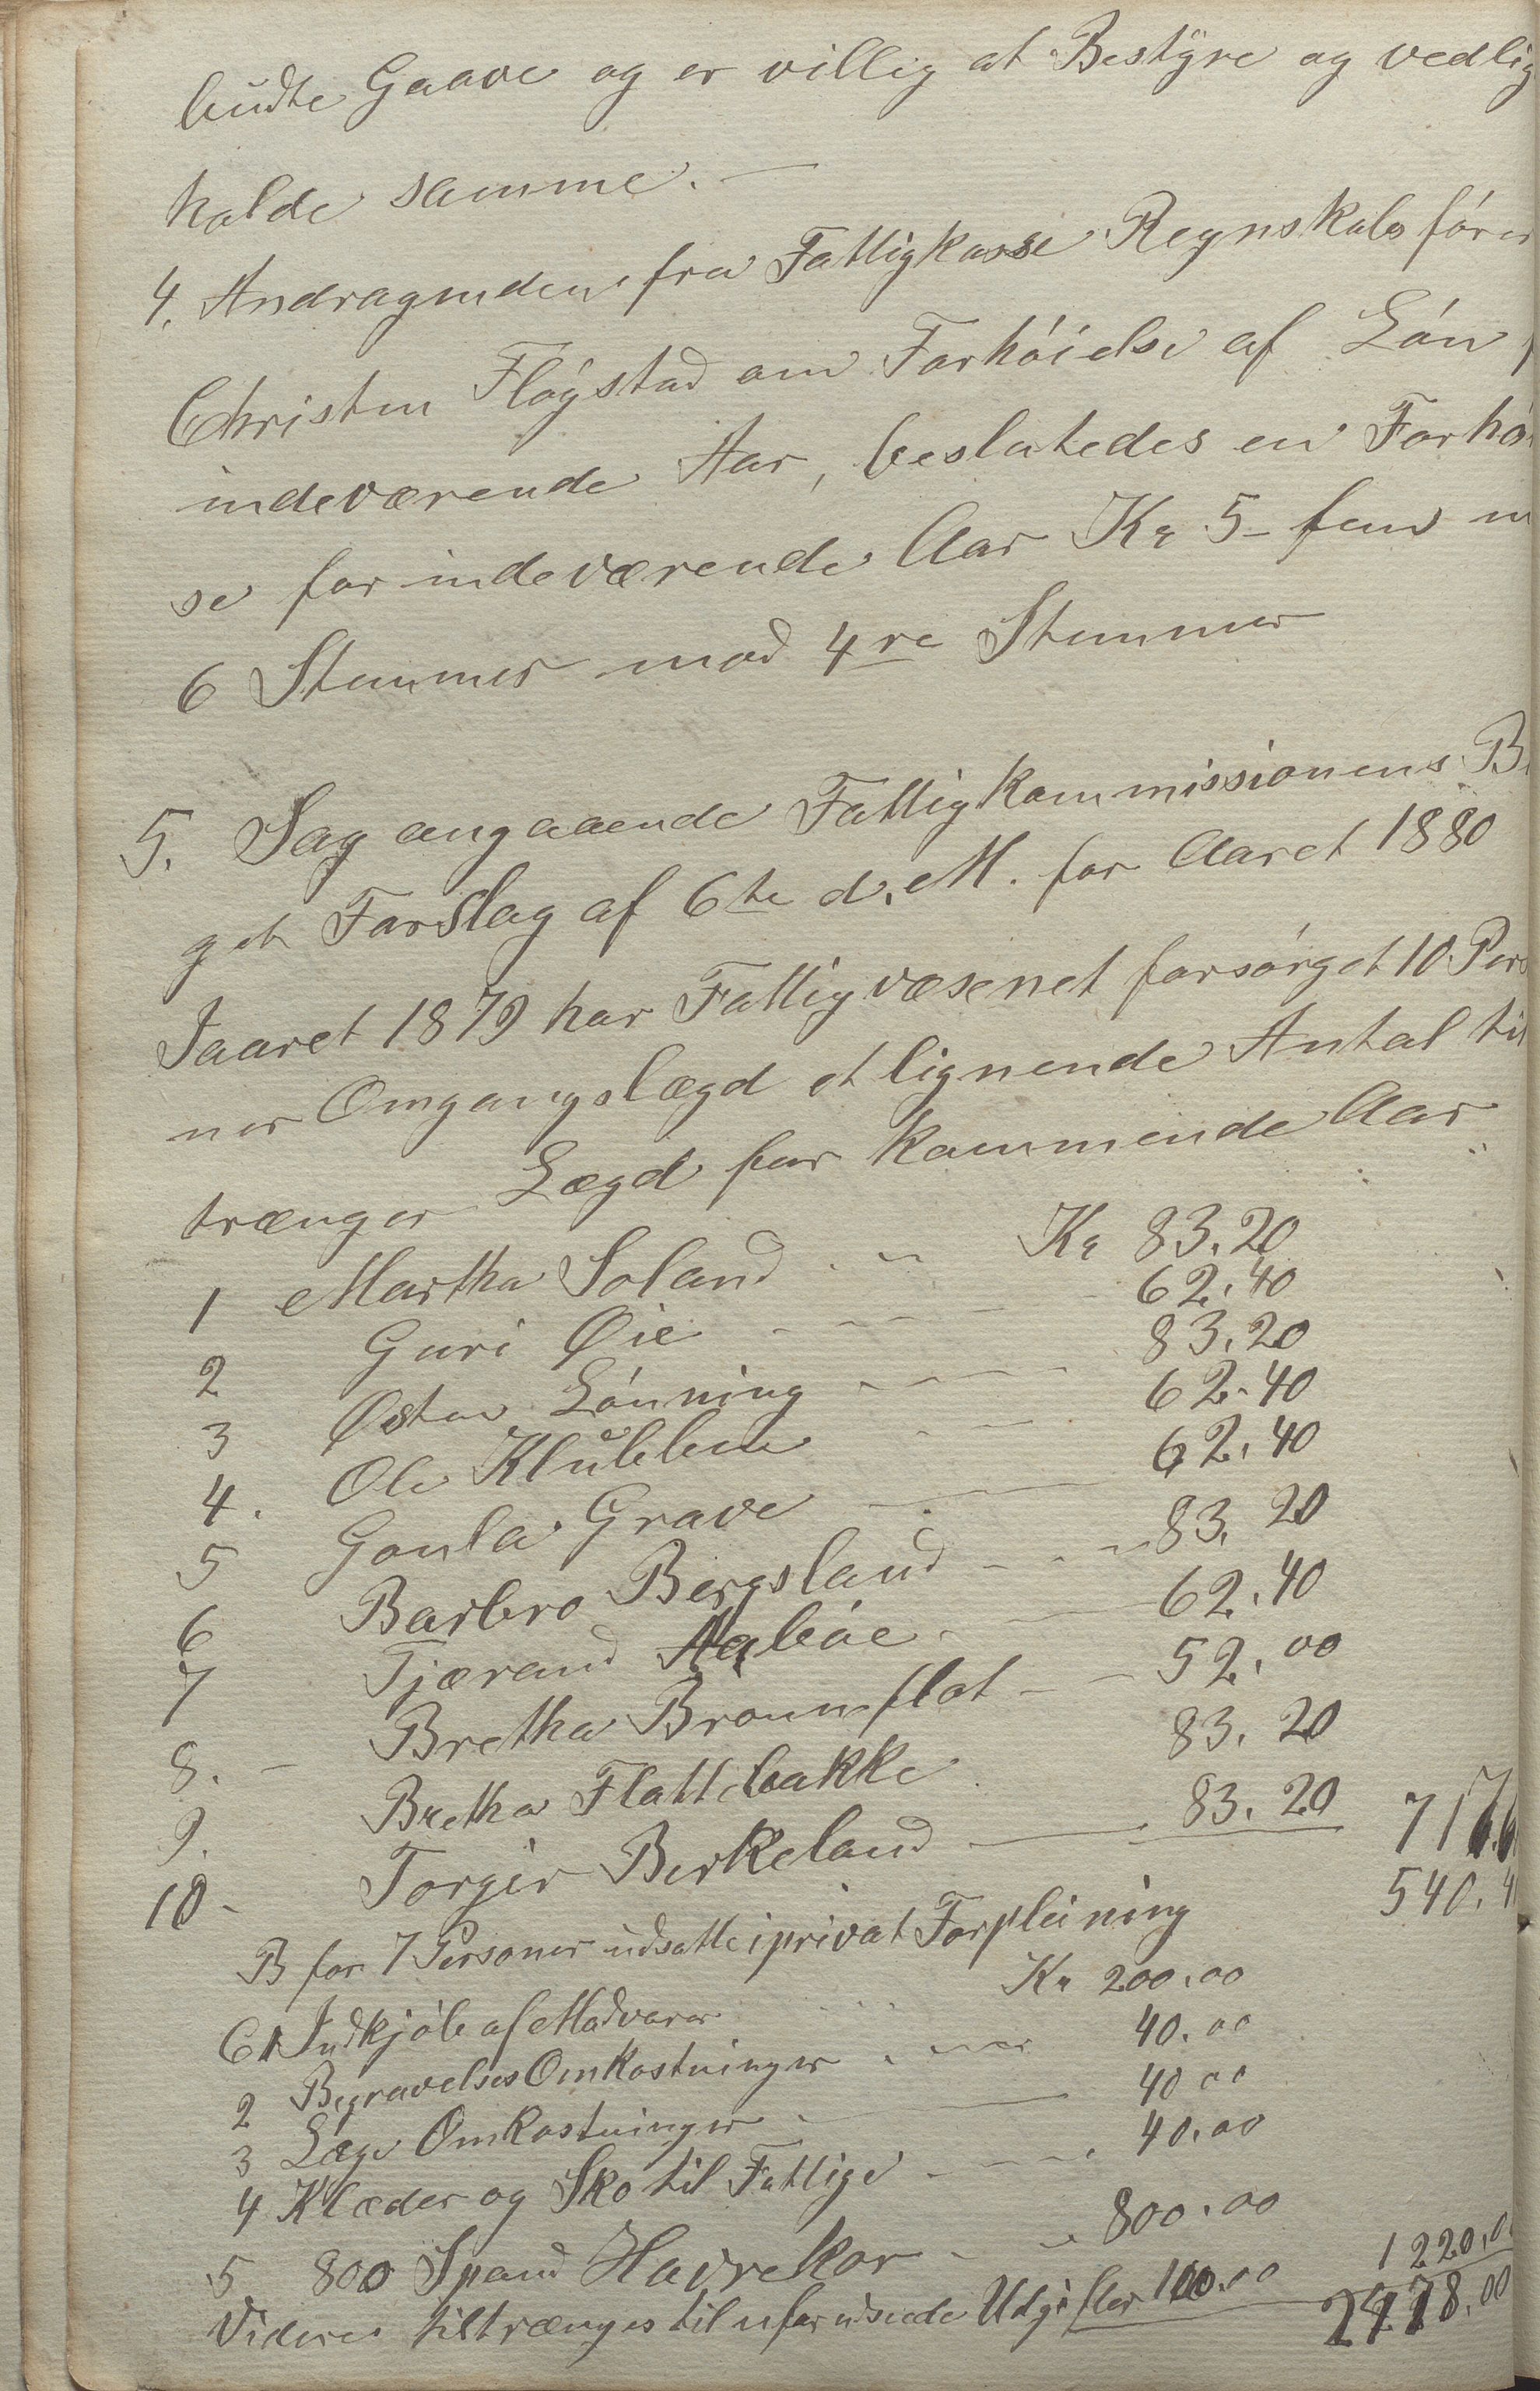 budte Gaave og er villig at Bestÿre og vedlig
holde samme. —
4. Andragenden fra Fattigkasse Regnskabsfører
Christen Fløgstad om Forhøielse af Løn
indeværende Aar, besluttedes en Forhøi
se for indeværende Aar Kr 5 – fem m
6 Stemmer mod 4re Stemmer
5. Sag angaaende Fattigkommissionens B
get Forslag af 6te d. M. for Aaret 1880
Iaaret 1879 har Fattigvæsenet forsørget 10 Pers
ner Omgangslægd et lignende Antal til
trænger Lægd for kommende Aar
1 Martha Soland Kr 83.20
2 Guri Øie 62.40
3 Østen Lønning 83.20
4. Ole Klubben 62.40
5 Gonla Grave 62.40
6 Barbro Bergsland 83.20
7 Tjærand Aabøe 62.40
8. – Bretha Brounflot 52.00
9. Bretha Flattebakke 83.20
10 – Torger Birkeland 83.20 717.6
B for 7 Personer udsatte i privat Forpleining 540.4
C 1 Indkjøb af Madvarer Kr 200.00
2 Begravelses Omkostninger 40.00
3 Læge Omkostninger 40 00
4 Klæder og Sko til Fattige 40.00
5 800 Spand Havrekor 800.00
Videre tiltrænges til uforudseede Udgifter 100.00 1220.00
2478.00